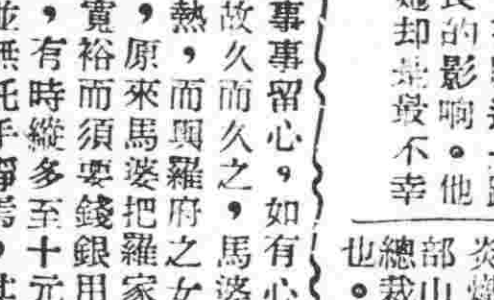 的影响。他
她却是最不幸
部山
總裁
也。
事事留心，如有心
故久而久之，馬婆
熱，而與羅府之女
，原來馬婆把羅家
寬裕而須要錢銀用
，有時縱多至十元
並無托手掙焉，